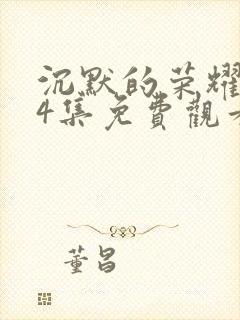 沉默的荣耀
4集免費觀
董昌